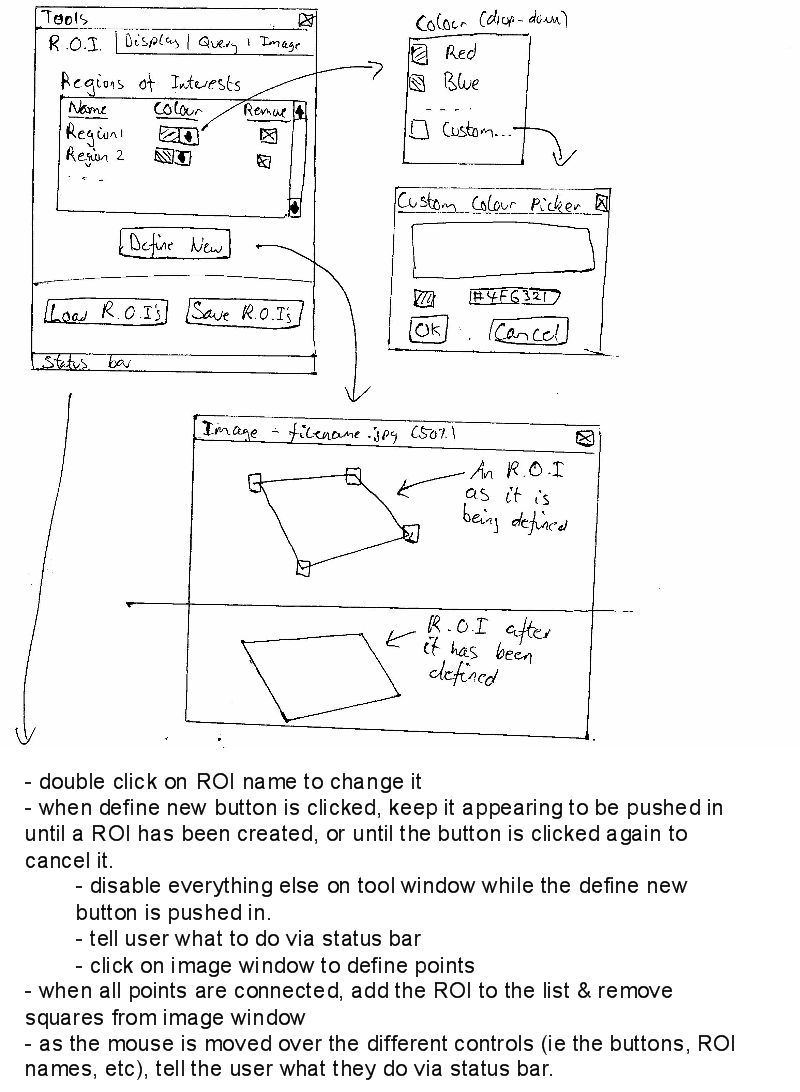 Tools
R.O.I. | Display | Query | Image
Regions of Interests
Name Colour Remove
Region 1
Region 2
- - -
Define New
Load R.O.I's Save R.O.I's
Status bar
Colour (drop-down)
Red
Blue
- - - -
Custom...
Custom Colour Picker
#4F6321
OK Cancel
Image - filename.jpg (50%)
An R.O.I
as it is
being defined
R.O.I after
it has been
defined
- double click on ROI name to change it
- when define new button is clicked, keep it appearing to be pushed in
until a ROI has been created, or until the button is clicked again to
cancel it.
- disable everything else on tool window while the define new
button is pushed in.
- tell user what to do via status bar
- click on image window to define points
- when all points are connected, add the ROI to the list & remove
squares from image window
- as the mouse is moved over the different controls (ie the buttons, ROI
names, etc), tell the user what they do via status bar.